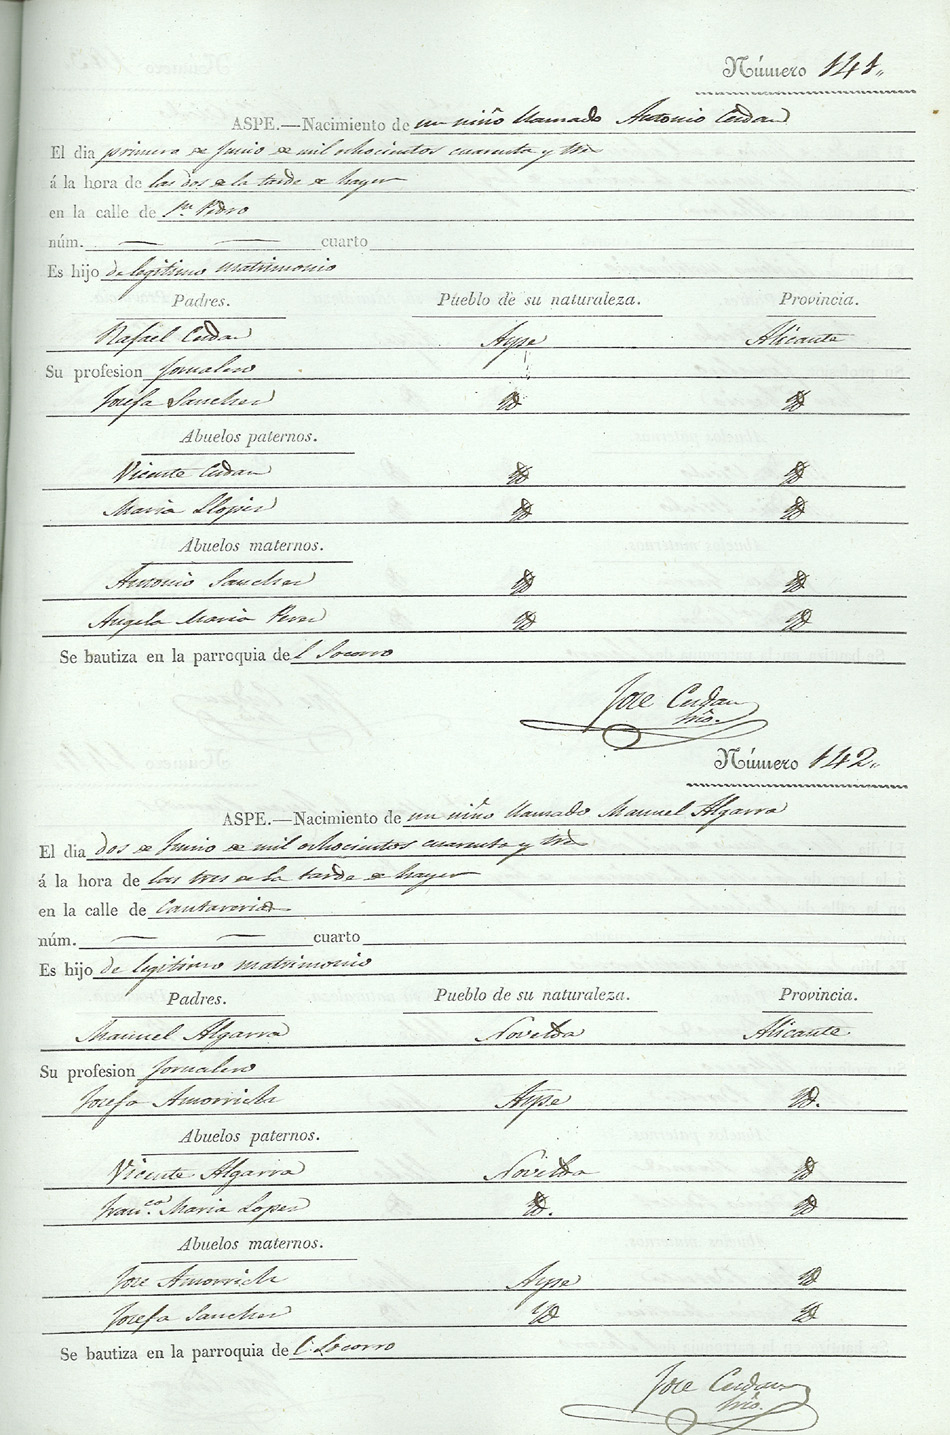 Número 141,,
ASPE.—Nacimiento de un niño llamado Antonio Cerdan
El dia primero de Junio de mil ochocientos cuarenta y tres
á la hora de las dos de la tarde de hayer
en la calle de Sn. Pedro
núm. — — cuarto
Es hijo de legitimo matrimonio
Padres. Pueblo de su naturaleza. Provincia.
Rafael Cerdan Aspe Alicante
Su profesion Jornalero
Josefa Sanchez Yd Yd
Abuelos paternos.
Vicente Cerdan Yd Yd
Maria Llopis Yd Yd
Abuelos maternos.
Antonio Sanchez Yd Yd
Angela Maria Yd Yd
Se bautiza en la parroquia de l Socorro
Jose Cerdan
Srio.
Número 142,,
ASPE.—Nacimiento de un niño llamado Manuel Algarra
El dia dos de Junio de mil ochocientos cuarenta y tres
á la hora de las tres de la tarde de hayer
en la calle de Cantareria
núm. — — cuarto
Es hijo de legitimo matrimonio
Padres. Pueblo de su naturaleza. Provincia.
Manuel Algarra Novelda Alicante
Su profesion Jornalero
Josefa Amorrich Aspe Yd.
Abuelos paternos.
Vicente Algarra Novelda Yd
Franca. Maria Lopez Yd. Yd
Abuelos maternos.
Jose Amorrich Aspe Yd
Josefa Sanchez Yd Yd
Se bautiza en la parroquia de l Socorro
Jose Cerdan
Srio.